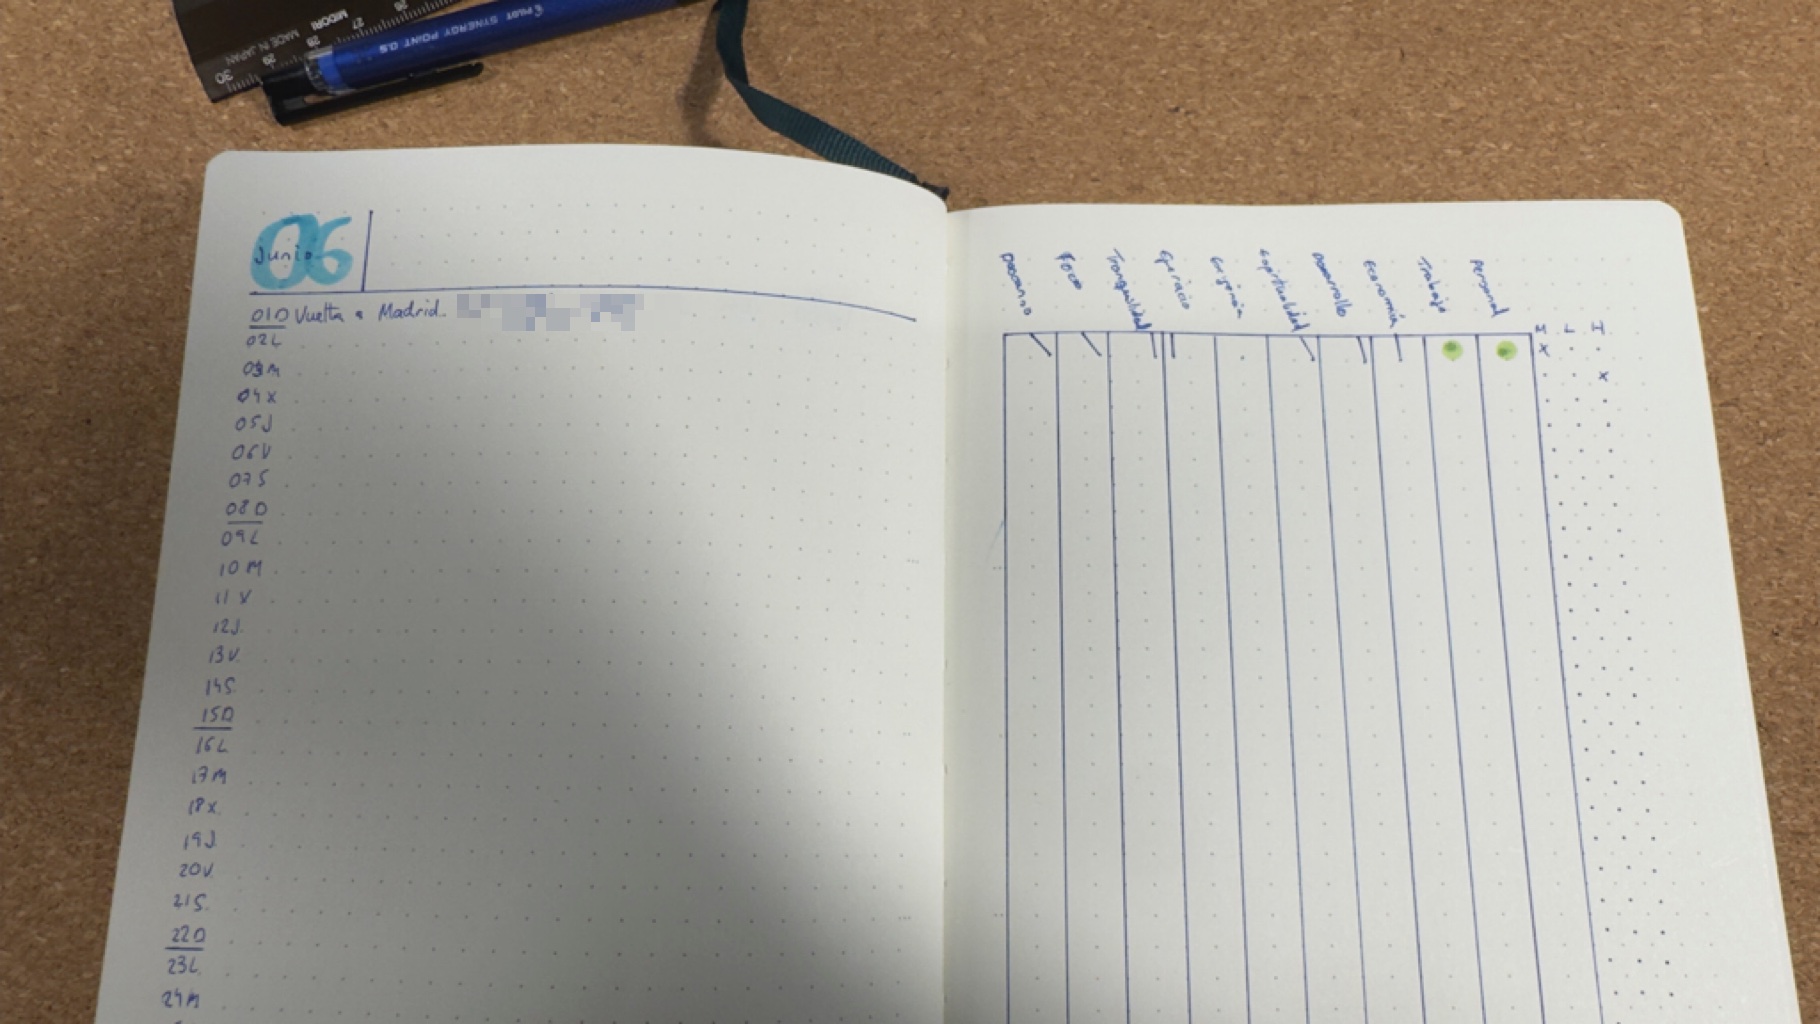 26
27
MIDORI
28
MADE IN JAPAN
29
30
PILOT SYNERGY POINT 0.5
06
Junio
01D Vuelta a Madrid.
02L
03M
04X
05J
06V
07S
08D
09L
10M
11X
12J.
13V.
14S.
15D
16L
17M
18X.
19J.
20V.
21S.
22D
23L
24M
Descanso
Foco
Tranquilidad
Ejercicio
Espiritualidad
Desarrollo
Economía
Trabajo
Personal
M L H
X
X